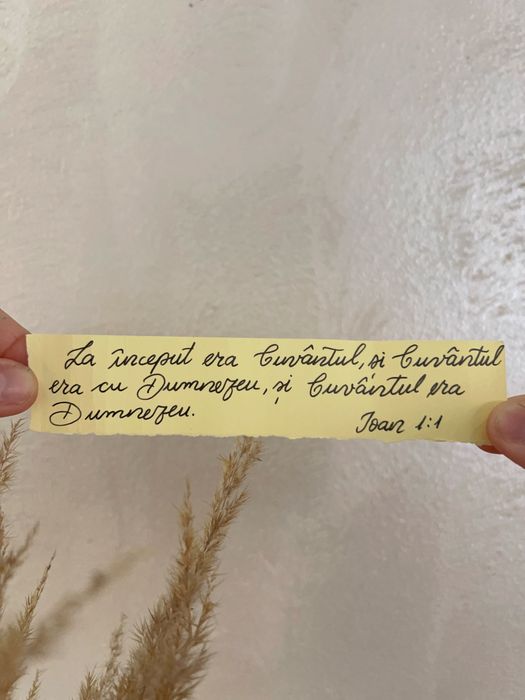 La început era Cuvântul, și Cuvântul
era cu Dumnezeu, și Cuvântul era
Dumnezeu.
Ioan 1:1